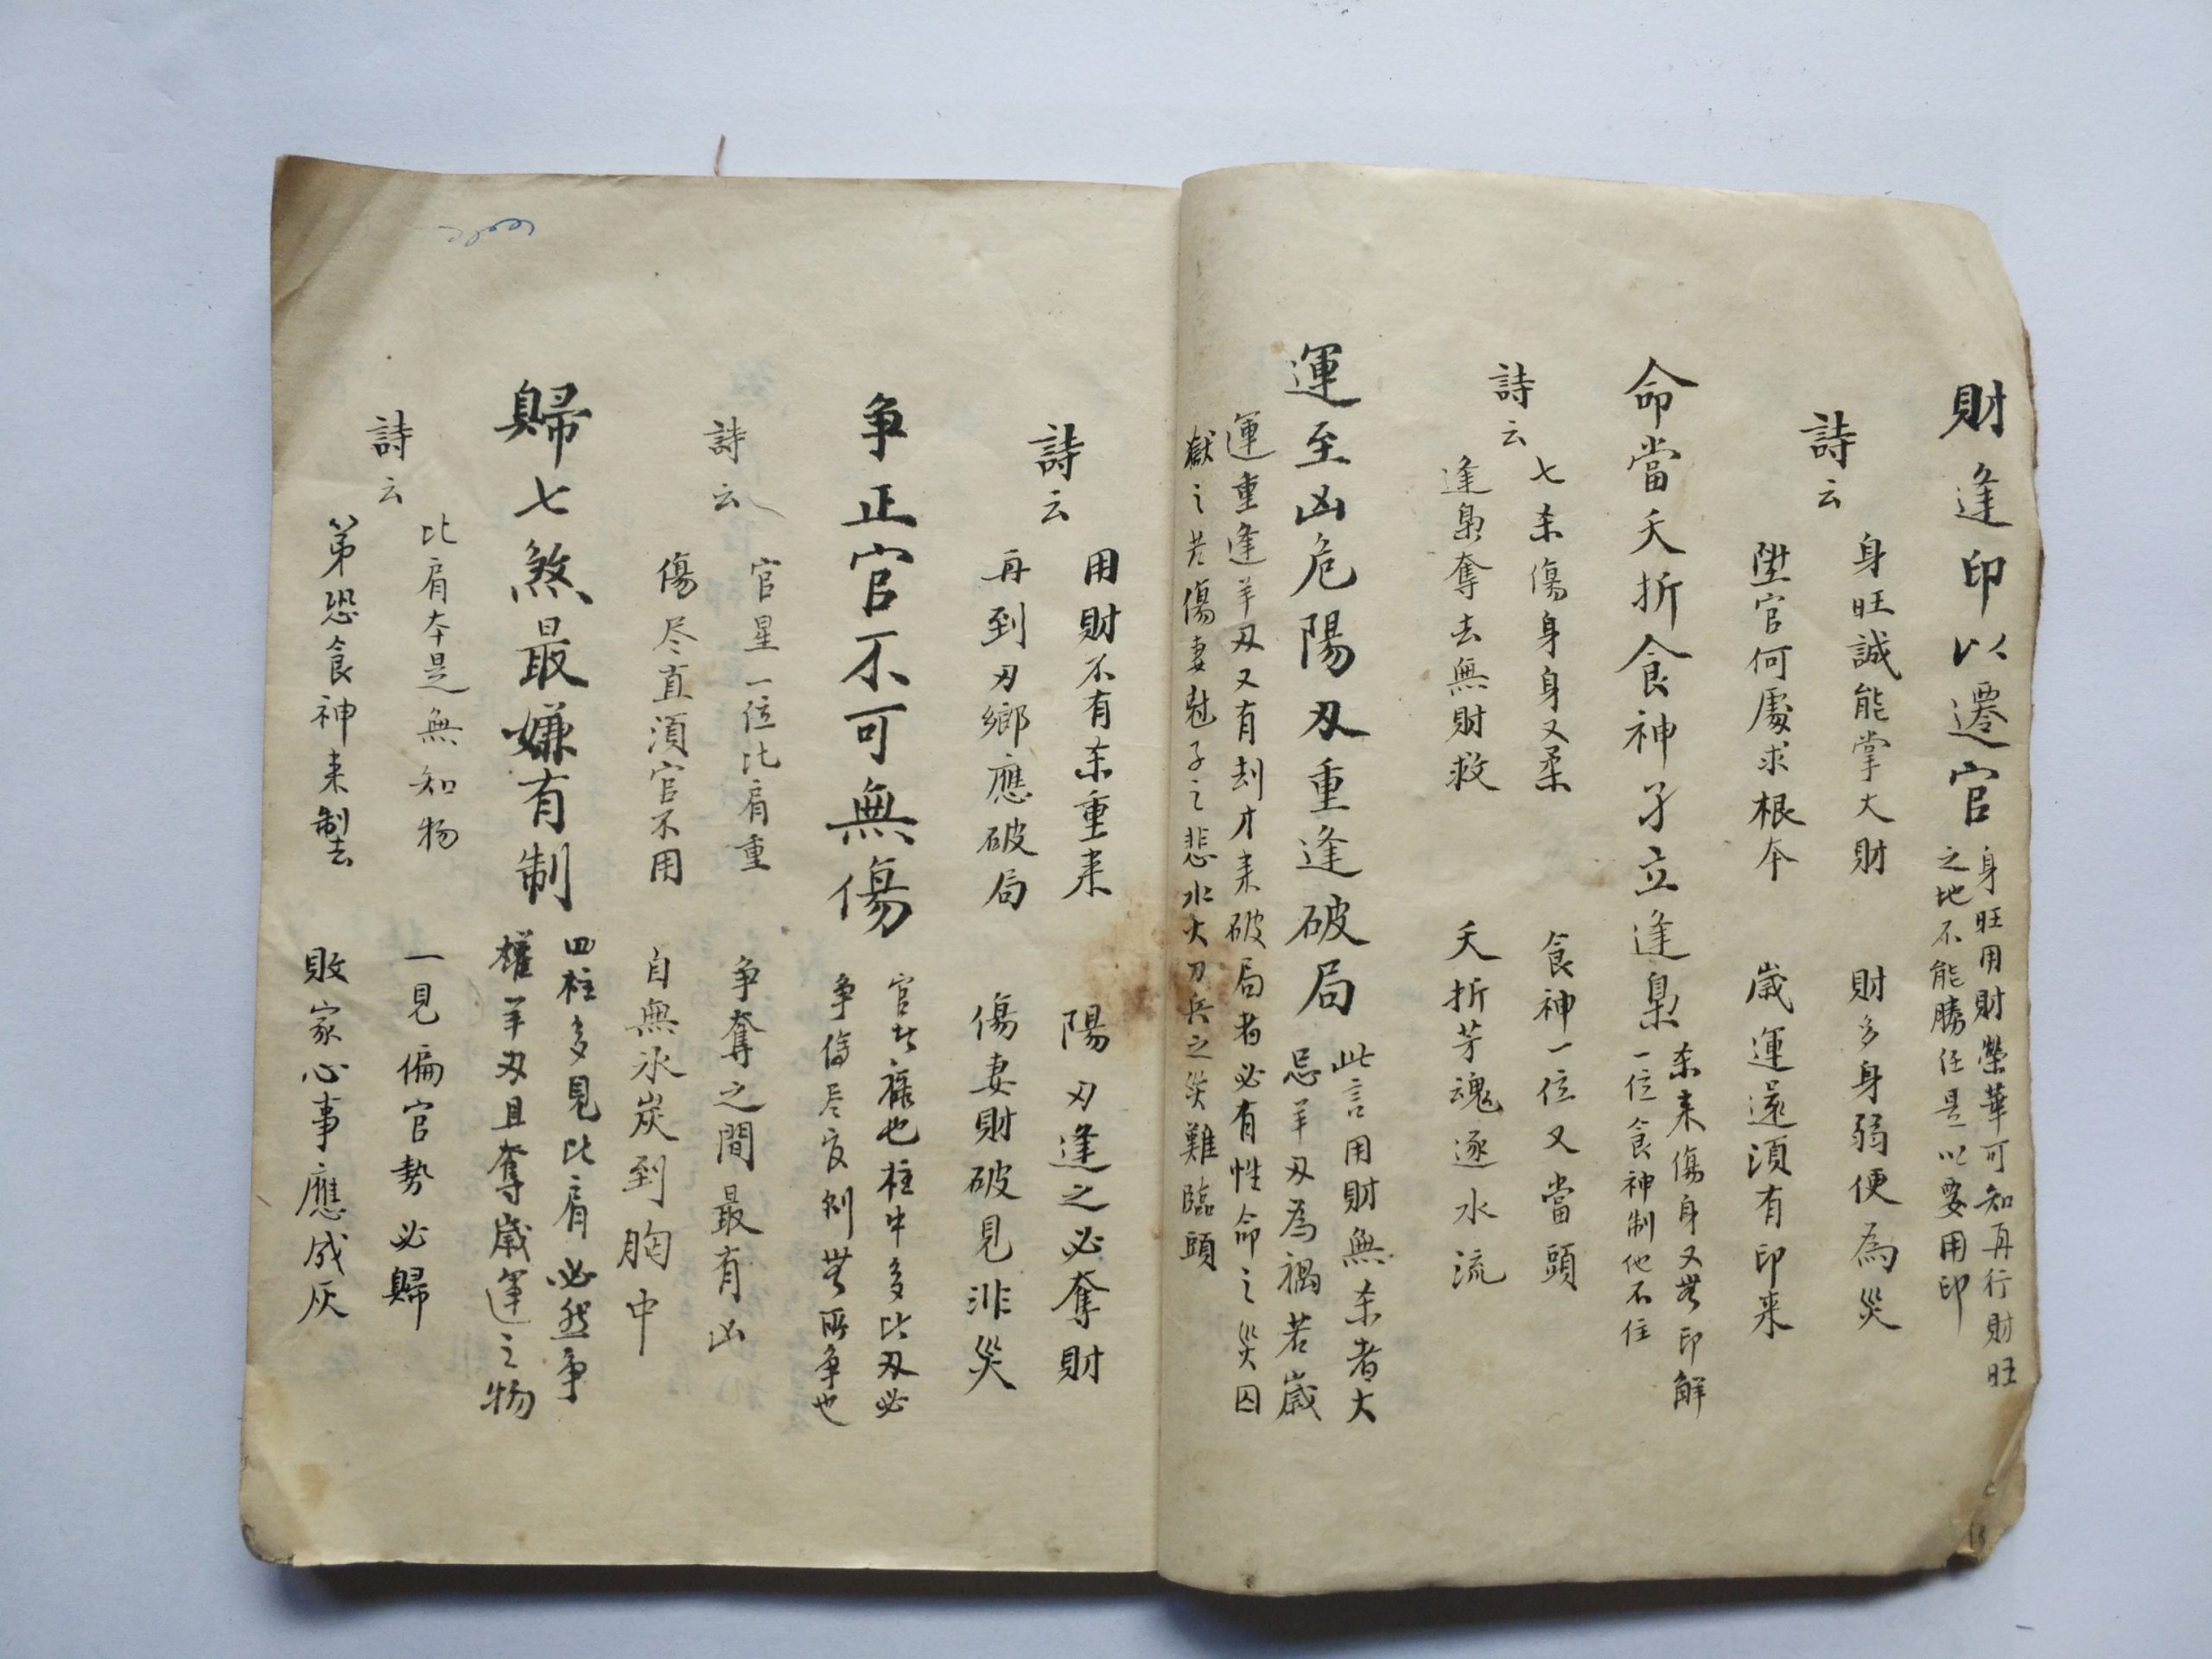 財逢印以遷官
身旺用財榮華可知再行財旺
之地不能勝任是以要用印
詩云
身旺誠能掌大財
財多身弱便為災
陞官何處求根本
歲運還須有印来
命當夭折食神孑立逢梟
杀来傷身又無印解
一位食神制他不住
詩云
七杀傷身身又柔
食神一位又當頭
逢梟奪去無財救
夭折芳魂逐水流
運至凶危陽刃重逢破局
此言用財無杀者大
忌羊刃為禍若歲
運重逢羊刃又有刦才来破局者必有性命之災囚
獄之苦傷妻尅子之悲水火刀兵之災難臨頭
詩云
用財不有杀重来
陽刃逢之必奪財
再到刃鄉應破局
傷妻財破見非災
争正官不可無傷
官者祿也柱中多比刃必
争傷尽官則無所争也
詩云
官星一位比肩重
争奪之間最有凶
傷尽直須官不用
自無氷炭到胸中
歸七煞最嫌有制
四柱多見比肩必然争
權羊刃且奪歲運之物
詩云
比肩本是無知物
一見偏官勢必歸
第恐食神来制去
敗家心事應成灰